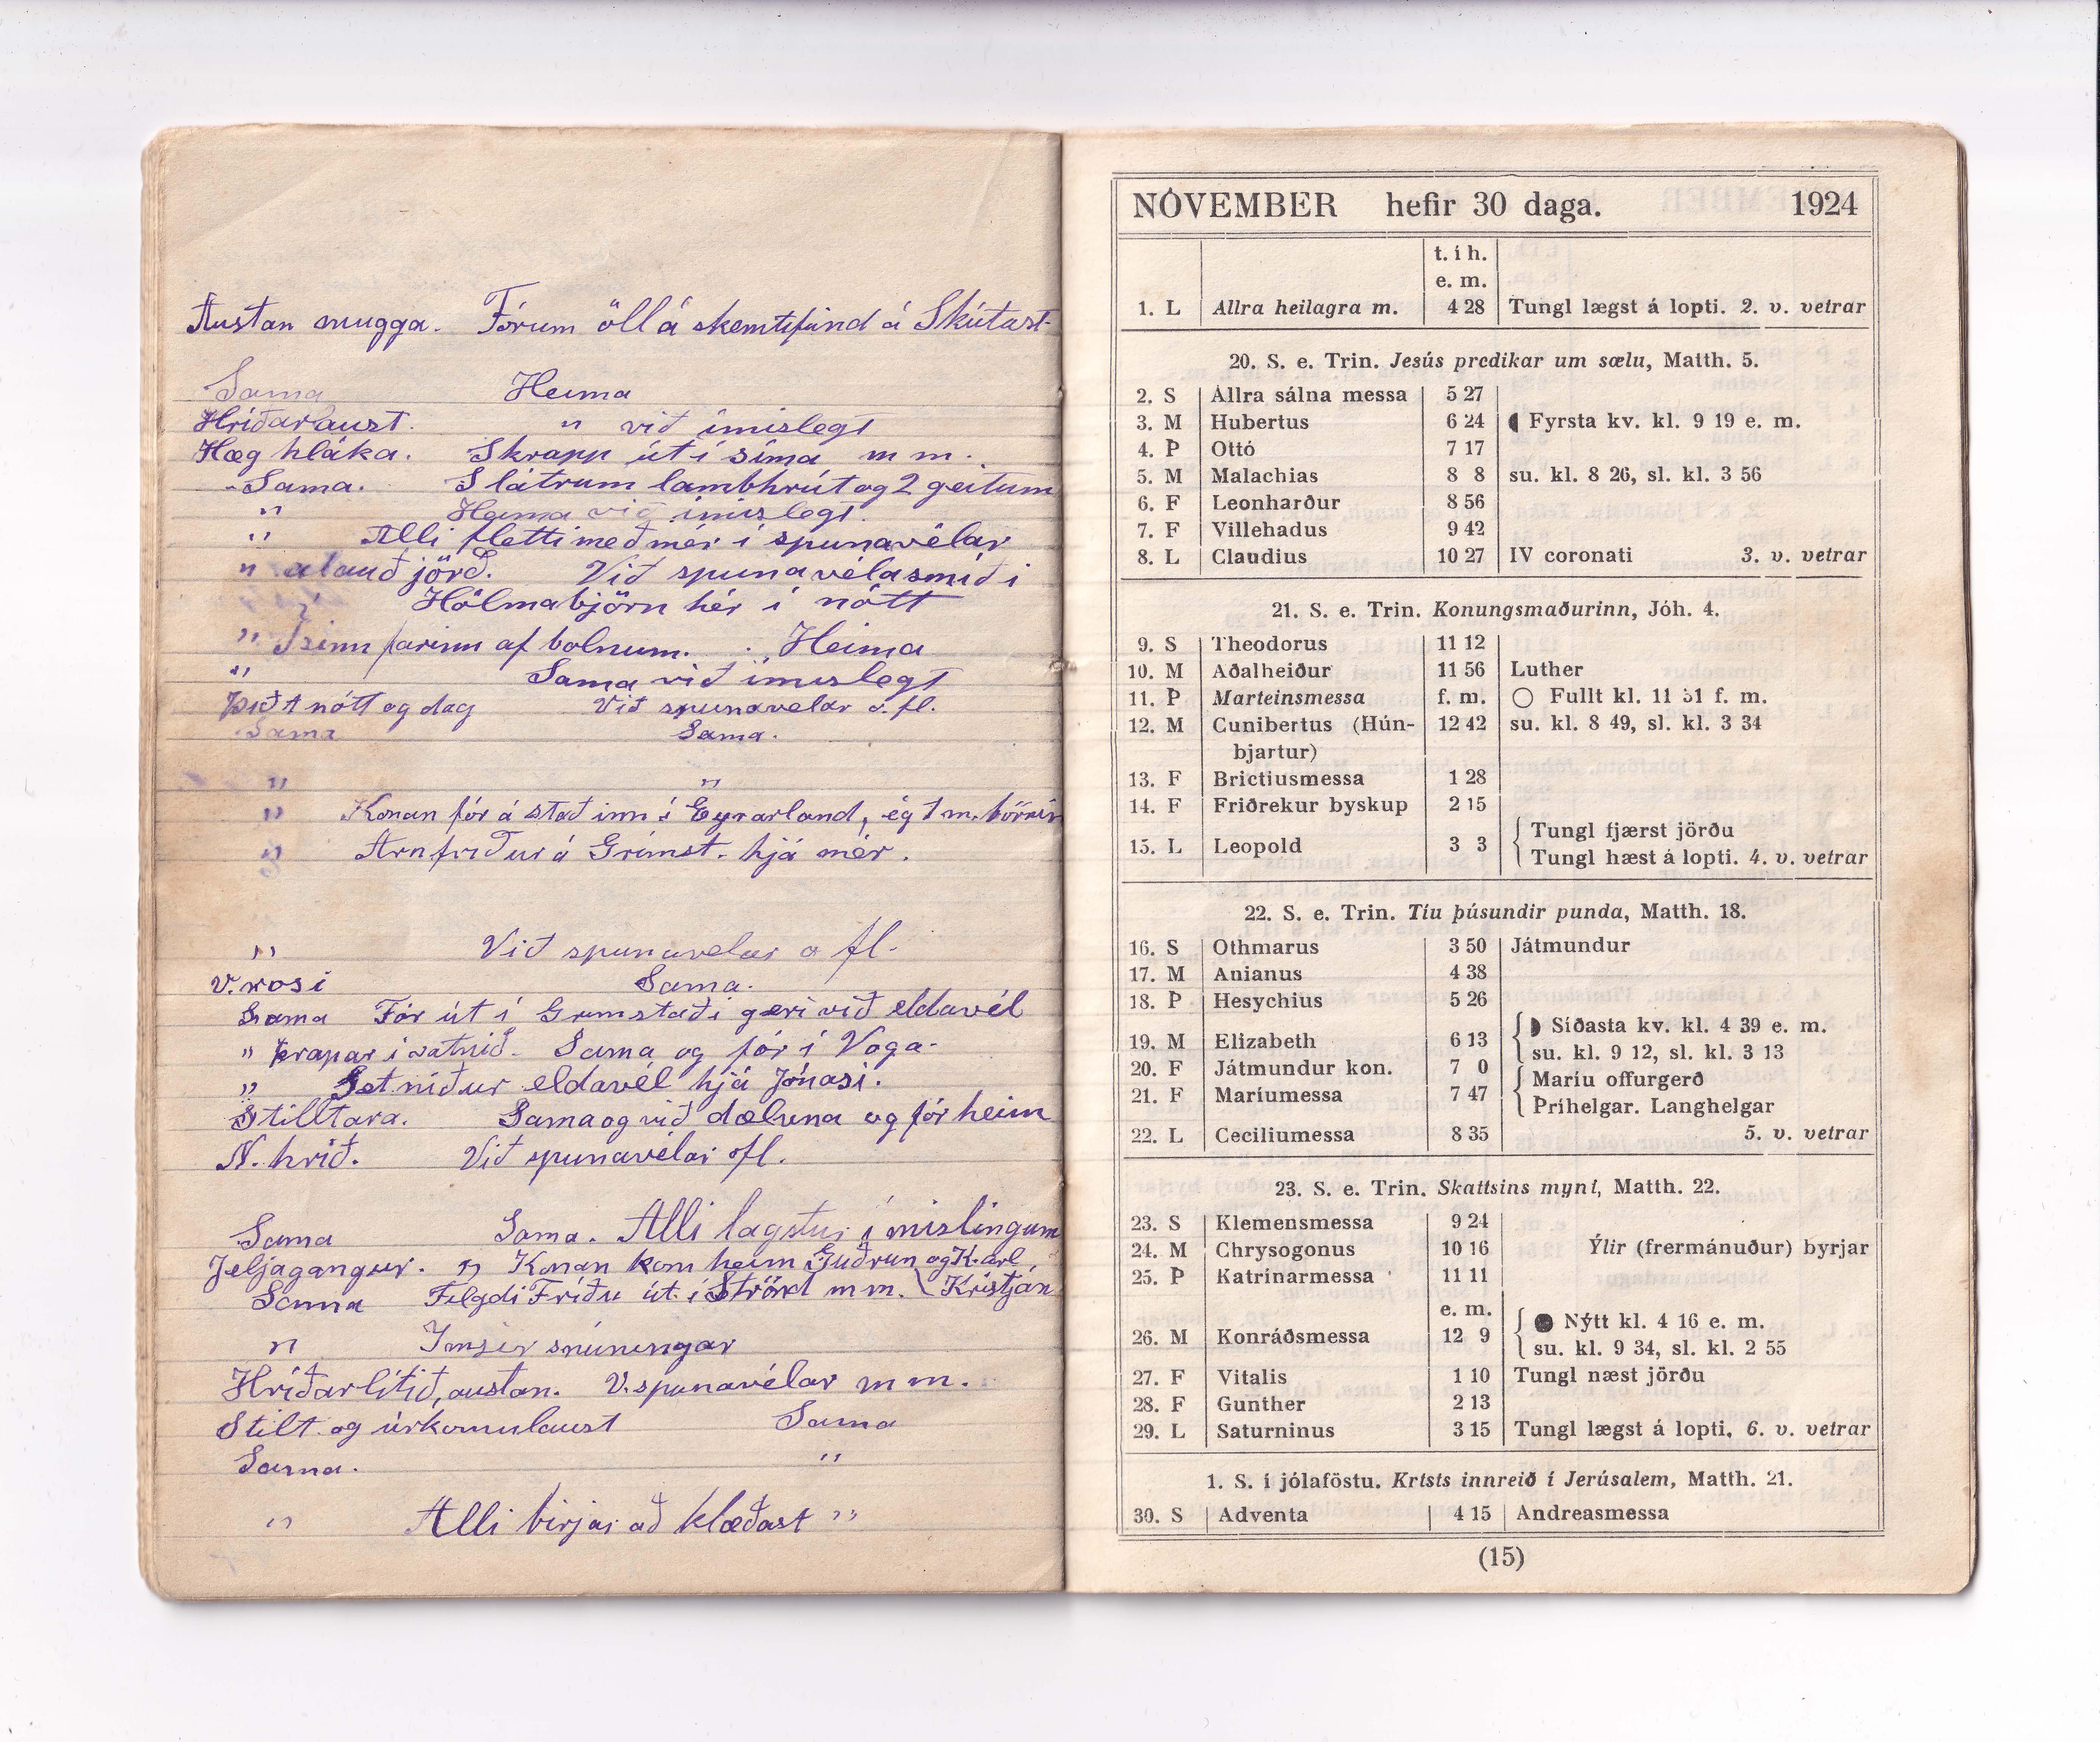 Austan mugga. Fórum öll á skemtifund á Skútust-
Sama Heima
Hríðarlaust. " við ímislegt
Hæg hláka. Skrapp út í síma m m.
Sama. Slátrum lambhrút og 2 geitum
" Heima við ímislegt.
" Alli fletti með mér í spunavélar
" alauð jörð. Við spunavélasmíði
Hólmabjörn hér í nótt
" Ísinn farinn af bolnum. Heima
" Sama við ímislegt
Þiðt nótt og dag Við spunavelar o. fl.
Sama Sama.
" "
" Konan fór á stað inn í Eyrarland, ég 1 m. börnin
" Arnfríður á Grímst. hjá mér.
" Við spunavelar o fl.
V. rosi Sama.
Sama Fór út í Grimstaði geri við eldavél
" krapar í vatnið. Sama og fór í Voga-
" Set niður eldavél hjá Jónasi.
Stilltara. Sama og við dæluna og fór heim
N. hríð. Við spunavélar ofl.
Sama Sama. Alli lagstur í mislingum
Jeljagangur. " Konan kom heim Guðrun og Karl
Sama Filgdi Fríðu út í Strönd m m. Kristján
" Imsir snúningar
Hríðarlítið, austan. V. spunavélar m m.
Stilt og úrkomulaust Sama
Sama. "
" Alli birjar að klæðast "
NÓVEMBER hefir 30 daga. 1924
t. í h.
e. m.
1. L Allra heilagra m. 4 28 Tungl lægst á lopti. 2. v. vetrar
20. S. e. Trin. Jesús predikar um sælu, Matth. 5.
2. S Allra sálna messa 5 27
3. M Hubertus 6 24 Fyrsta kv. kl. 9 19 e. m.
4. Þ Ottó 7 17
5. M Malachias 8 8 su. kl. 8 26, sl. kl. 3 56
6. F Leonharður 8 56
7. F Villehadus 9 42
8. L Claudius 10 27 IV coronati 3. v. vetrar
21. S. e. Trin. Konungsmaðurinn, Jóh. 4.
9. S Theodorus 11 12
10. M Aðalheiður 11 56 Luther
11. Þ Marteinsmessa f. m. Fullt kl. 11 31 f. m.
12. M Cunibertus (Hún- 12 42 su. kl. 8 49, sl. kl. 3 34
bjartur)
13. F Brictiusmessa 1 28
14. F Friðrekur byskup 2 15
15. L Leopold 3 3 Tungl fjærst jörðu
Tungl hæst á lopti. 4. v. vetrar
22. S. e. Trin. Tíu þúsundir punda, Matth. 18.
16. S Othmarus 3 50 Játmundur
17. M Anianus 4 38
18. Þ Hesychius 5 26
19. M Elizabeth 6 13 Síðasta kv. kl. 4 39 e. m.
su. kl. 9 12, sl. kl. 3 13
20. F Játmundur kon. 7 0
21. F Maríumessa 7 47 Maríu offurgerð
Þríhelgar. Langhelgar
22. L Ceciliumessa 8 35 5. v. vetrar
23. S. e. Trin. Skattsins mynt, Matth. 22.
23. S Klemensmessa 9 24
24. M Chrysogonus 10 16 Ýlir (frermánuður) byrjar
25. Þ Katrínarmessa 11 11
e. m.
26. M Konráðsmessa 12 9 Nýtt kl. 4 16 e. m.
su. kl. 9 34, sl. kl. 2 55
27. F Vitalis 1 10 Tungl næst jörðu
28. F Gunther 2 13
29. L Saturninus 3 15 Tungl lægst á lopti, 6. v. vetrar
1. S. í jólaföstu. Krists innreið í Jerúsalem, Matth. 21.
30. S Adventa 4 15 Andreasmessa
(15)